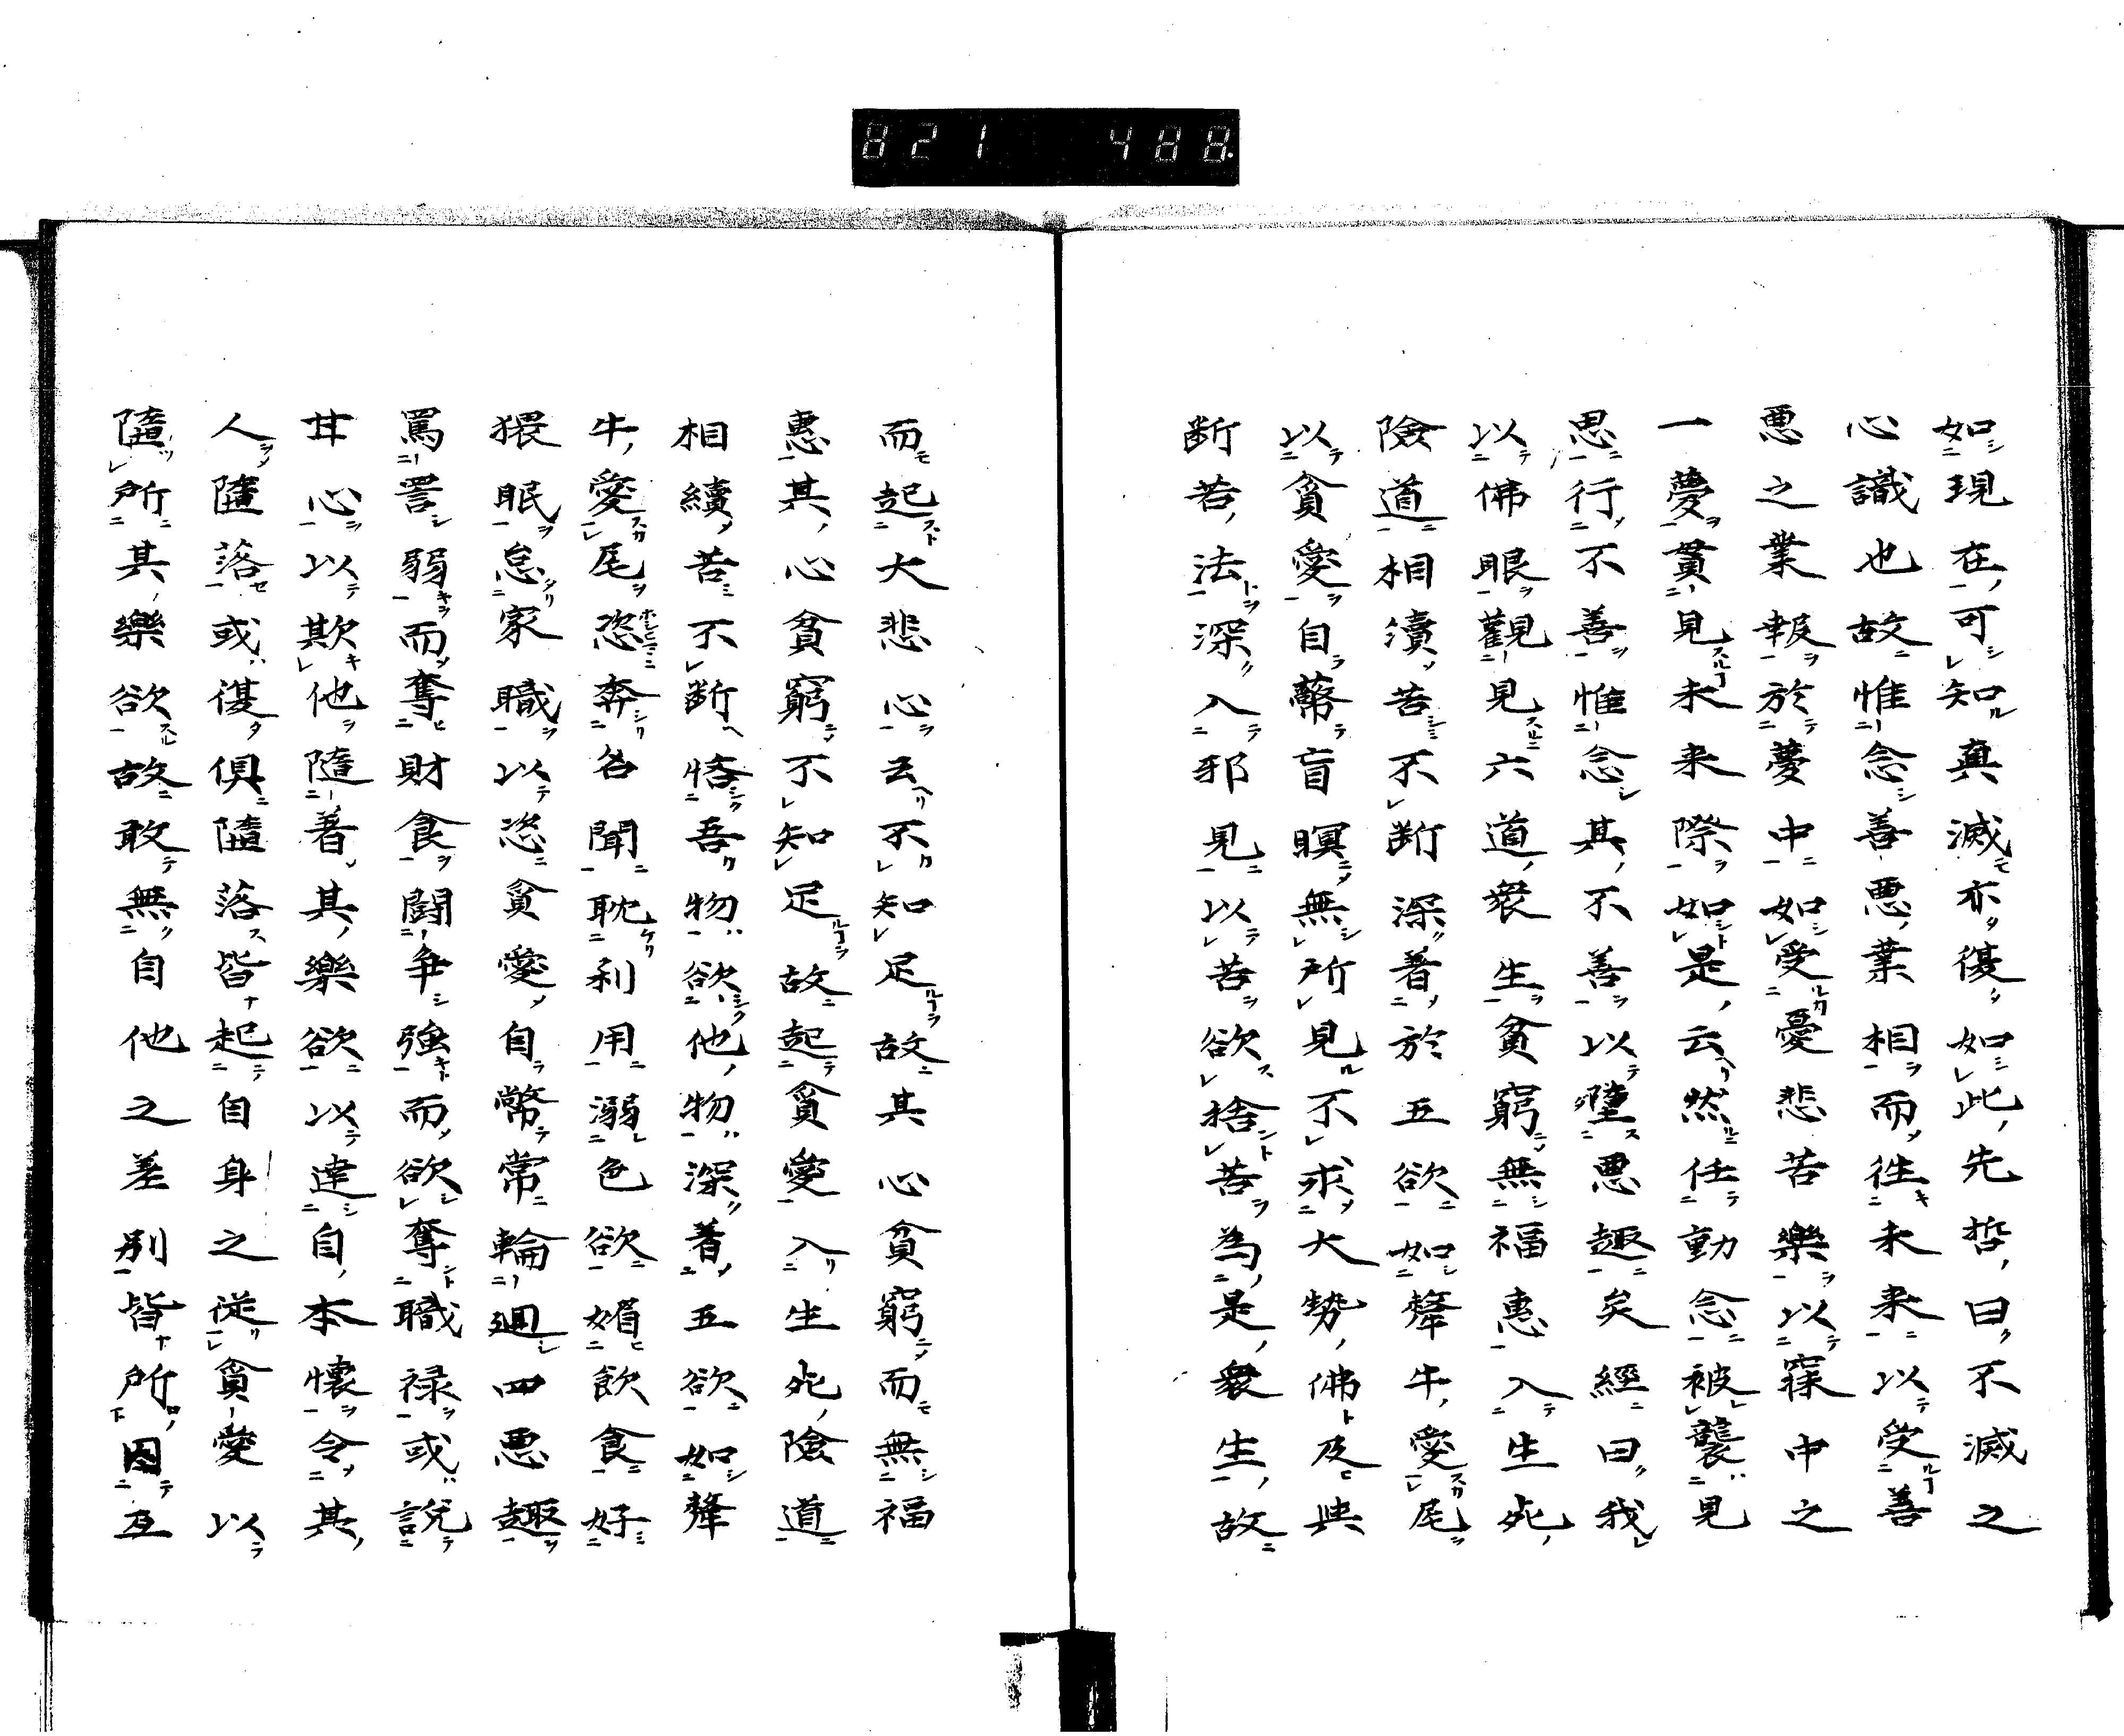 821 488.
如現在可知真滅亦復如此先哲曰不滅之
心識也故惟念善悪業相而徃未来以受善
悪之業報於夢中如受憂悲苦樂以寐中之
一夢貫見未来際如是云然任動念被襲見
思行不善惟念其不善以墮悪趣矣經曰我
以佛眼觀見六道衆生貧窮無福惠入生死
険道相續苦不断深著於五欲如犛牛愛尾
以貪愛自蔽盲瞑無所見不求大勢佛及與
断苦法深入邪見以苦欲捨苦為是衆生故
而起大悲心云不知足故其心貧窮而無福
惠其心貧窮不知足故起貪愛入生死險道
相續苦不断悋吾物欲他物深著五欲如犛
牛愛尾恣奔名聞耽利用溺色欲媚飲食好
猥眠怠家職以恣貪愛自幣常輪廻四悪趣
罵詈弱而奪財食闘争強而欲奪職禄或説
甘心以欺他隨著其樂欲以達自本懐令其
人墮落或復倶墮落皆起自身之従貪愛以
隨所其樂欲故敢無自他之差別皆所因互